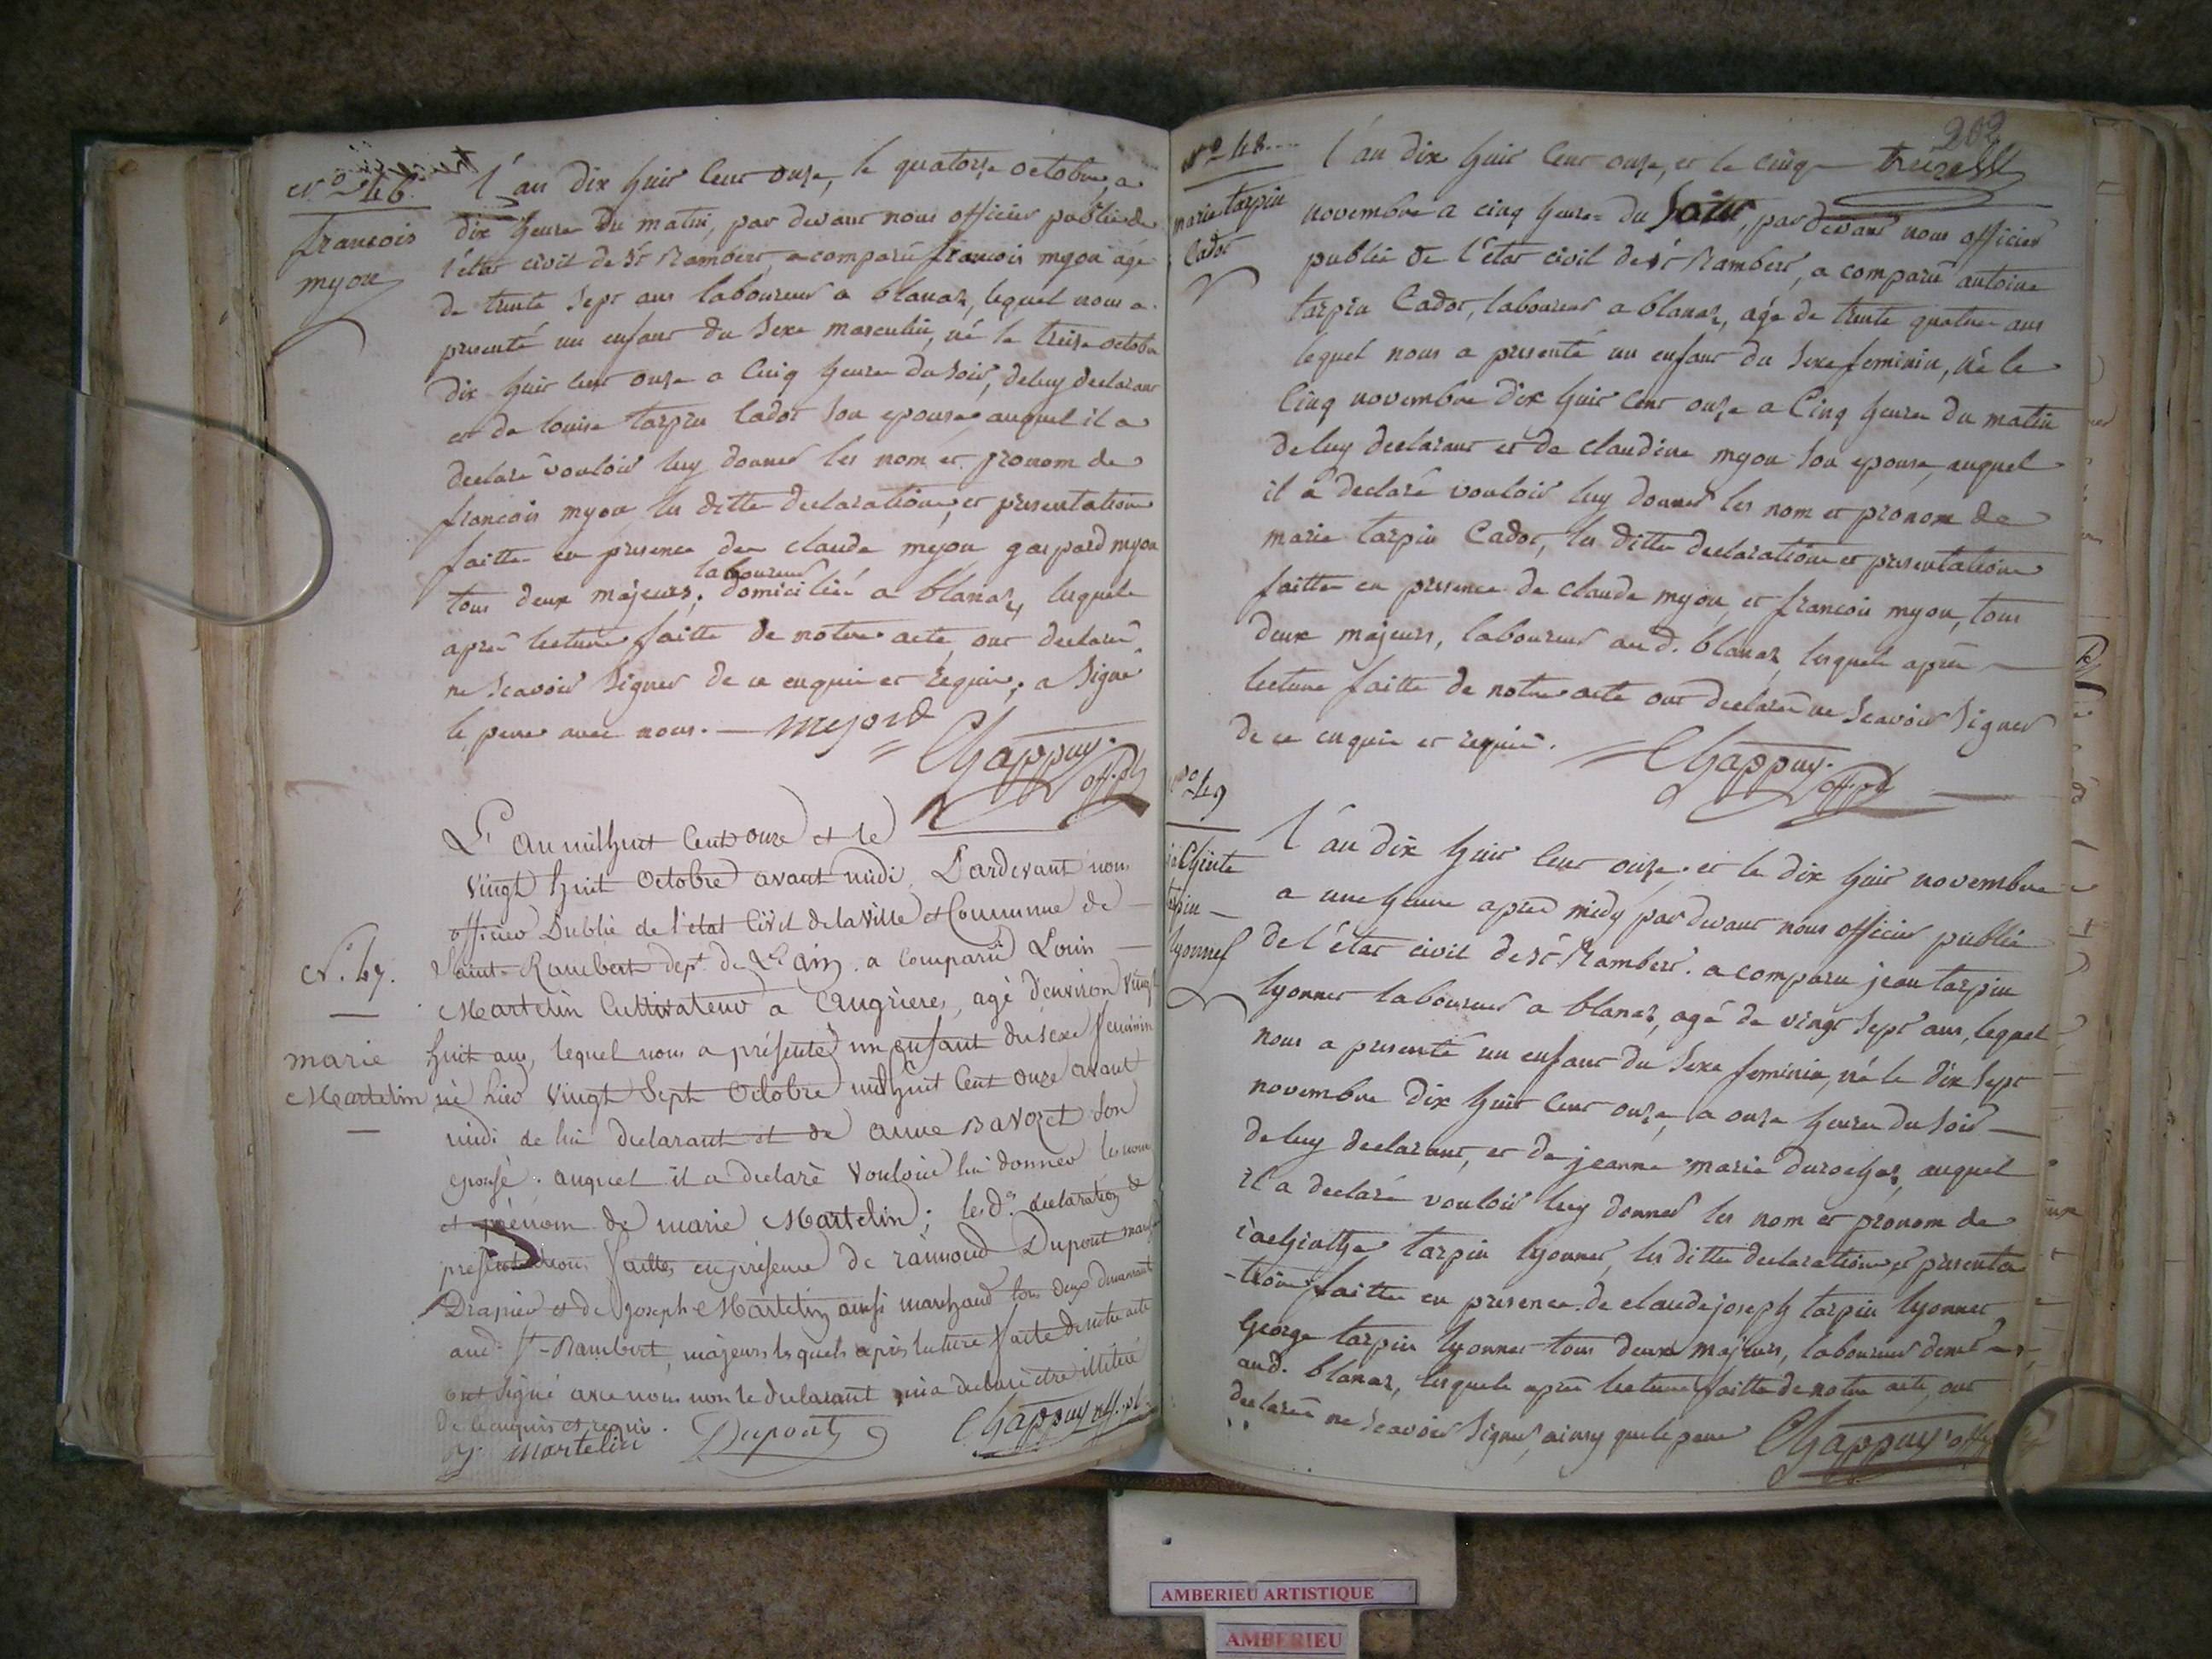 N.° 46.
francois
myon
L'an dix huit cent onze, le quatorze octobre, a
dix heure du matin, par devant nous officier public de
l'état civil de St Rambert, a comparu francois myon agé
de trente sept ans laboureur a blanaz, lequel nous a
presenté un enfant du sexe masculin, né le treize octobre
dix huit cent onze a cinq heure du soir, de luy declarant
et de louise tarpin Cador son epouse auquel il a
declaré vouloir luy donner les nom et pronom de
francois myon les ditte declaration et presentation
faitte en presence de claude myon gaspard myon
laboureur
tous deux majeurs, domicilié a blanaz, lesquels
après lecture faitte de notre acte, ont declaré
ne scavoir signer de ce enquis et requis, a signé
le pere avec nous. myond
Chappuy. off. pb
N.° 47.
marie
Martelin
L'an mil huit Cent onze et le
vingt huit octobre avant midi, Pardevant nous
officier Public de l'état Civil de la Ville et Commune de
Saint-Rambert dept. de L'ain. a Comparu Louis
Martelin Cultivateur a Angrieres, agé d'environ vingt
huit ans, lequel nous a présenté un enfant du sexe feminin
né hier vingt sept octobre mil huit Cent onze avant
midi de lui declarant et de anne Bavozet son
epouse. auquel il a declaré vouloir lui donner les nom
et prénom de marie Martelin; les d. declaration &
presentation faittes en présence de raimond Dupont marchand
Drapier et de joseph Martelin aussi marchand tous deux demeurant
aud. St-Rambert, majeurs lesquels après lecture faite de notre acte
ont signé avec nous non le declarant qui a declaré être illitéré
de ce enquis et requis.
J martelin Dupont Chappuy off. pb.
202
N.° 48....
marie tarpin
Cador
L'an dix huit cent onze, et le cinq treize
novembre a cinq heure du soir, par devant nous officier
public de l'état civil de St Rambert, a comparu antoine
tarpin Cador, laboureur a blanaz, agé de trente quatre ans
lequel nous a presenté un enfant du sexe feminin, né le
cinq novembre dix huit cent onze a Cinq heure du matin
de luy declarant et de claudine myon son epouse, auquel
il a declaré vouloir luy donner les nom et pronom de
marie tarpin Cador, les ditte declaration et presentation
faitte en presence de claude myon, et francois myon, tous
deux majeurs, laboureur aud. blanaz, lesquels après
lecture faitte de notre acte ont declaré ne scavoir signer
de ce enquis et requis.
Chappuy. off. pb
N.° 49
iaChinte
tarpin
lyonnet
L'an dix huit cent onze, et le dix huit novembre
a une heure apred midy par devant nous officier public
de l'état civil de St Rambert. a comparu jean tarpin
lyonnet laboureur a blanaz, agé de vingt sept ans, lequel
nous a presenté un enfant du sexe feminin, né le dix sept
novembre dix huit cent onze, a onze heure du soir
de luy declarant, et de jeanne marie durochas, auquel
il a declaré vouloir luy donner les nom et pronom de
iachinthe tarpin lyonnet, les ditte declaration et presenta
-tion faitte en presence de claude joseph tarpin lyonnet
George tarpin lyonnet tous deux majeurs, laboureur
aud. blanaz, lesquels après lecture faitte de notre acte, ont
declaré ne scavoir signer, ainsy que le pere Chappuy off
AMBERIEU ARTISTIQUE
AMBERIEU